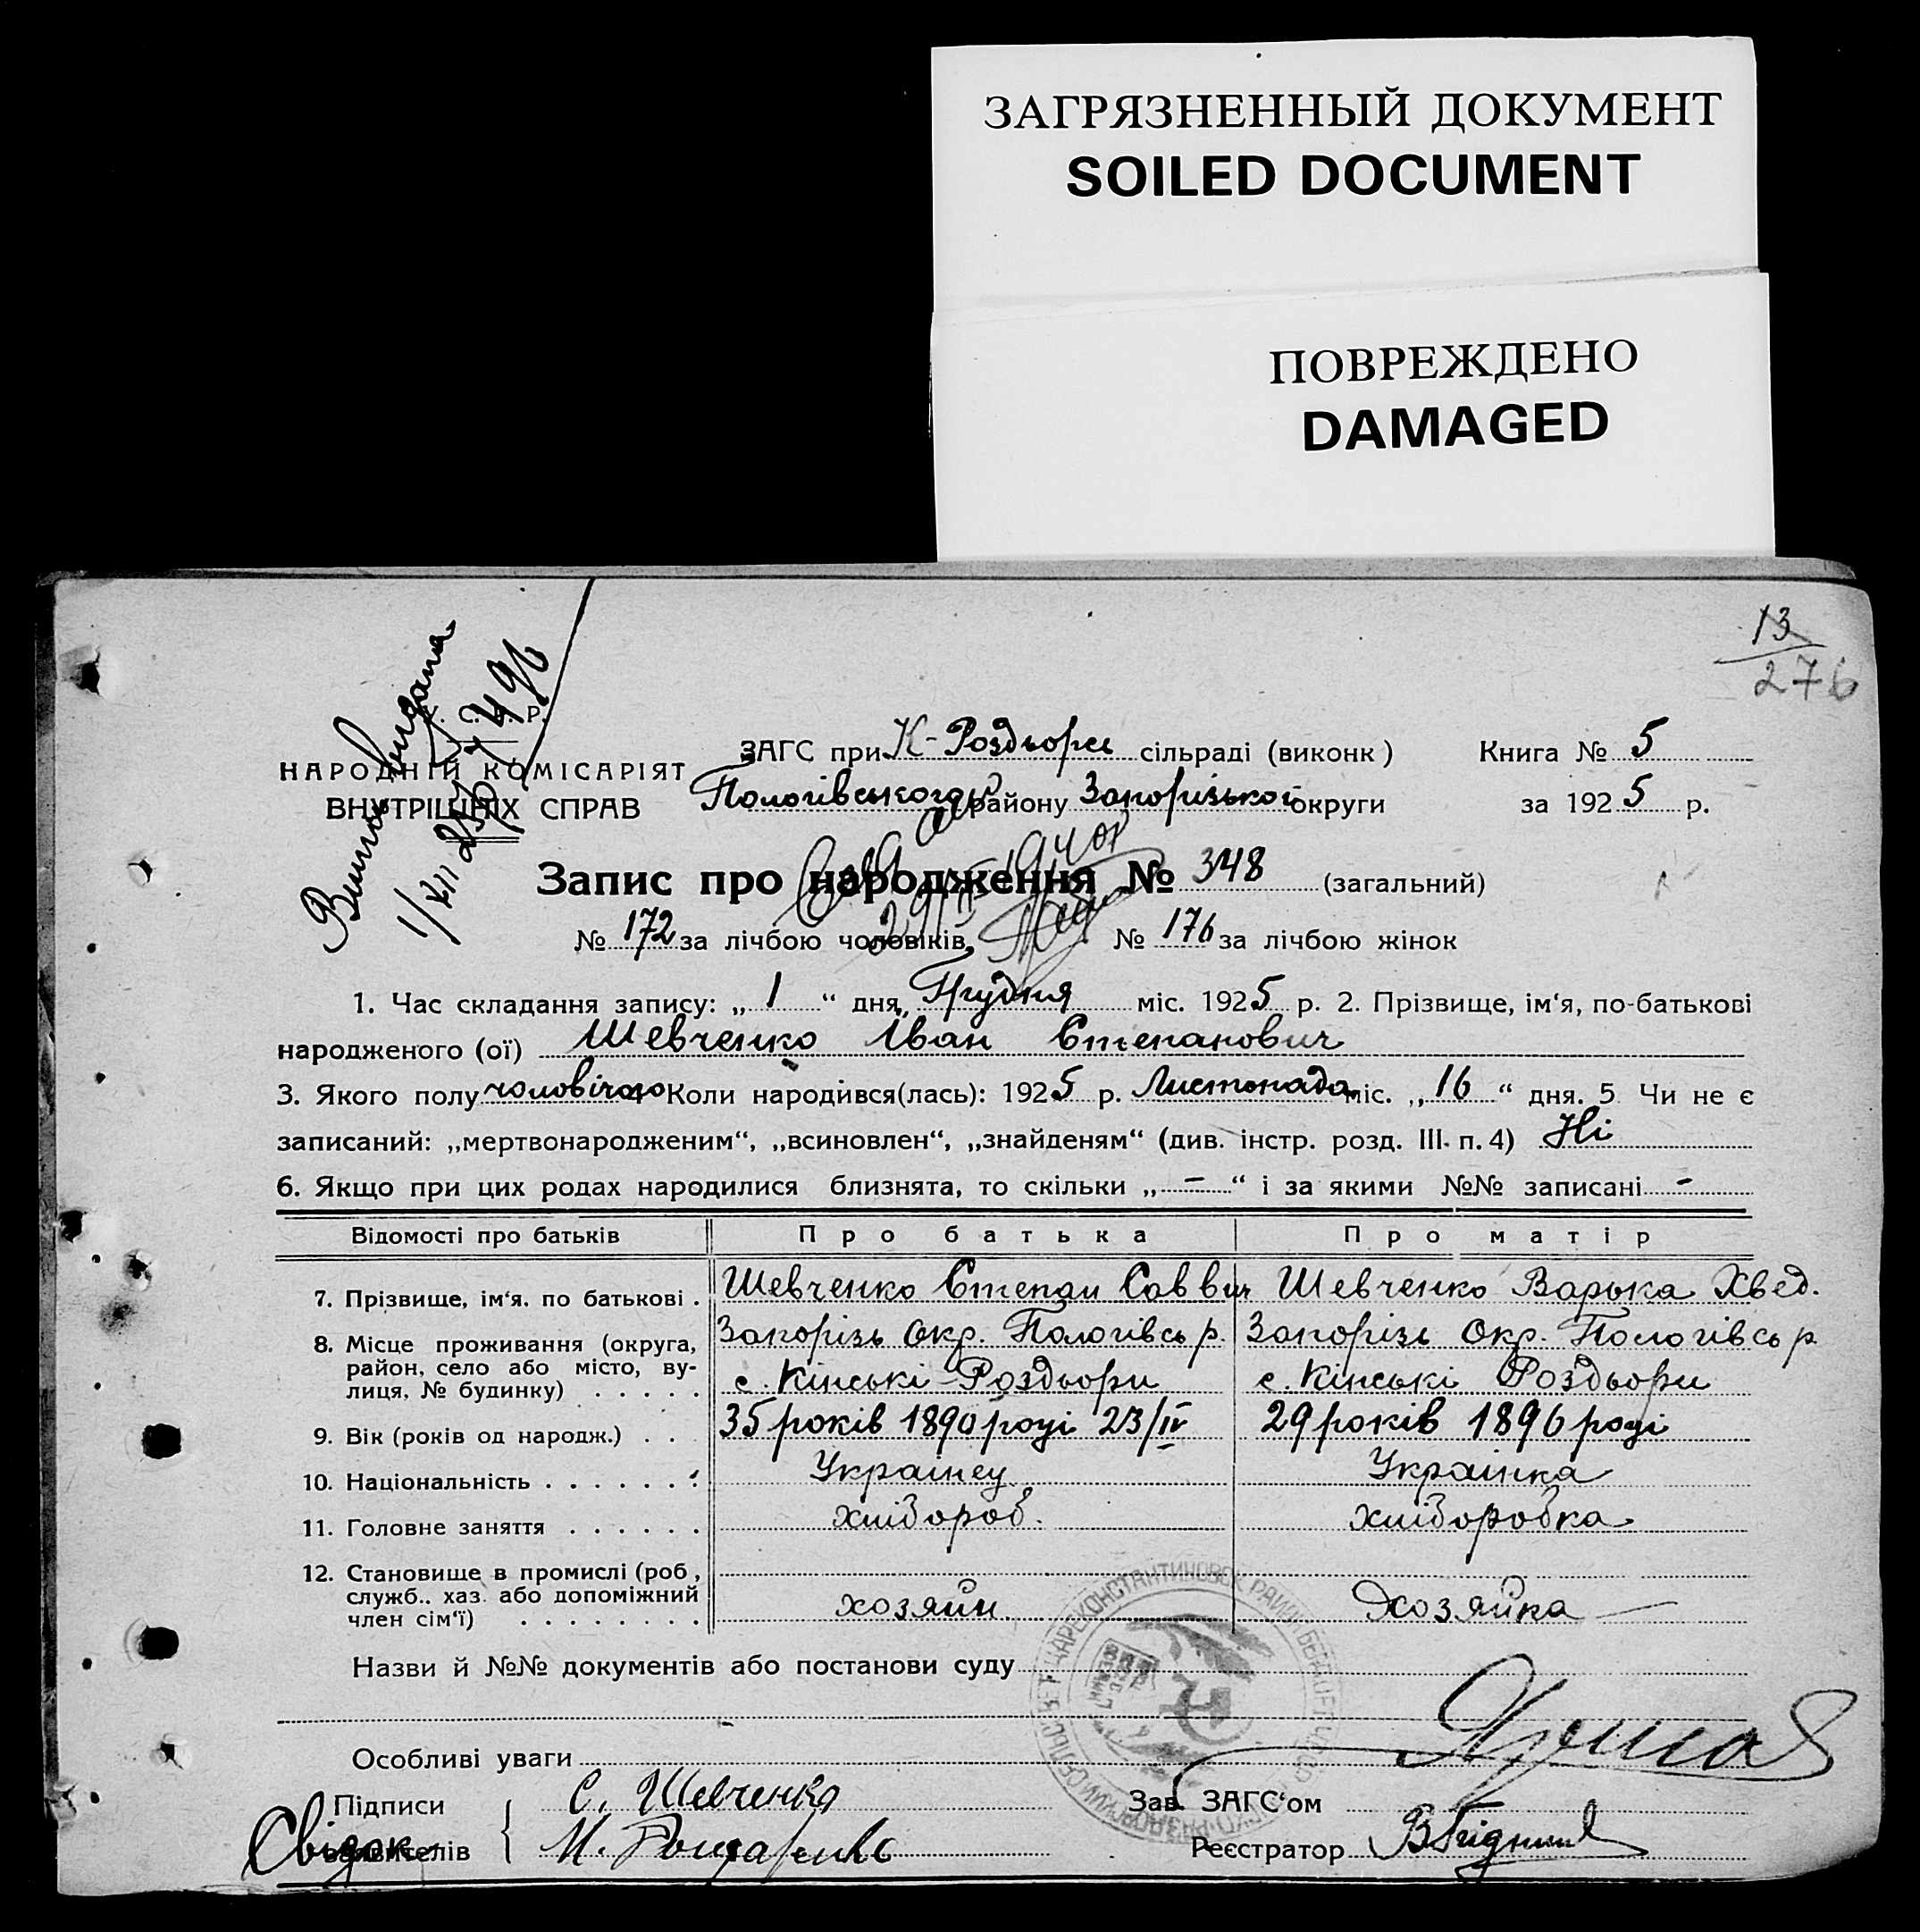 ЗАГРЯЗНЕННЫЙ ДОКУМЕНТ
SOILED DOCUMENT
ПОВРЕЖДЕНО
DAMAGED
13
276
Виписка видана
1/XII 25 р. 496
У. С. Р. Р.
НАРОДНІЙ КОМІСАРІЯТ
ВНУТРІШНІХ СПРАВ
ЗАГС при К-Роздьори сільраді (виконк) Книга № 5
Пологівського району Запорізької округи за 1925 р.
Запис про народження № 348 (загальний)
№ 172 за лічбою чоловіків, № 176 за лічбою жінок
1. Час складання запису: „1“ дня, Грудня міс. 1925 р. 2. Прізвище, ім‘я, по-батькові
народженого (ої) Шевченко Іван Степанович
3. Якого полу чоловічого Коли народився(лась): 1925 р. Листопада міс. „16“ дня. 5 Чи не є
записаний: „мертвонародженим“, „всиновлен“, „знайденям“ (див. інстр. розд. III. п. 4) Ні
6. Якщо при цих родах народилися близнята, то скільки „ – “ і за якими №№ записані -
Відомості про батьків Про батька Про матір
7. Прізвище, ім‘я. по батькові . Шевченко Степан Саввич Шевченко Варька Хвед.
8. Місце проживання (округа, Запорізь Окр. Пологівсь р. Запорізь Окр. Пологівсь р.
район, село або місто, ву-
лиця, № будинку) . . . . . с. Кінські-Роздьори с. Кінські Роздьори
9. Вік (років од народж.) . . . 35 років 1890 році 23/IV 29 років 1896 році
10. Національність . . . . . . . Українец Украінка
11. Головне заняття . . . . . . хлібороб. хліборобка
12. Становище в промислі (роб,
служб.. хаз. або допоміжний
член сім‘ї) . . . . . . . . хозяйн хозяйка —
Назви й №№ документів або постанови суду
Особливі уваги
Підписи С. Шевченко Зав. ЗАГС‘ом
Свідок заявителів М. Гончаренко Реєстратор